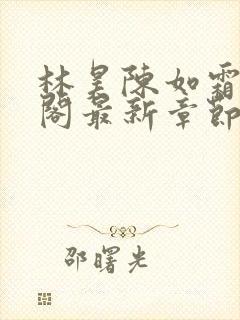 林昊陳如霜
閣最新章節
邵曙光